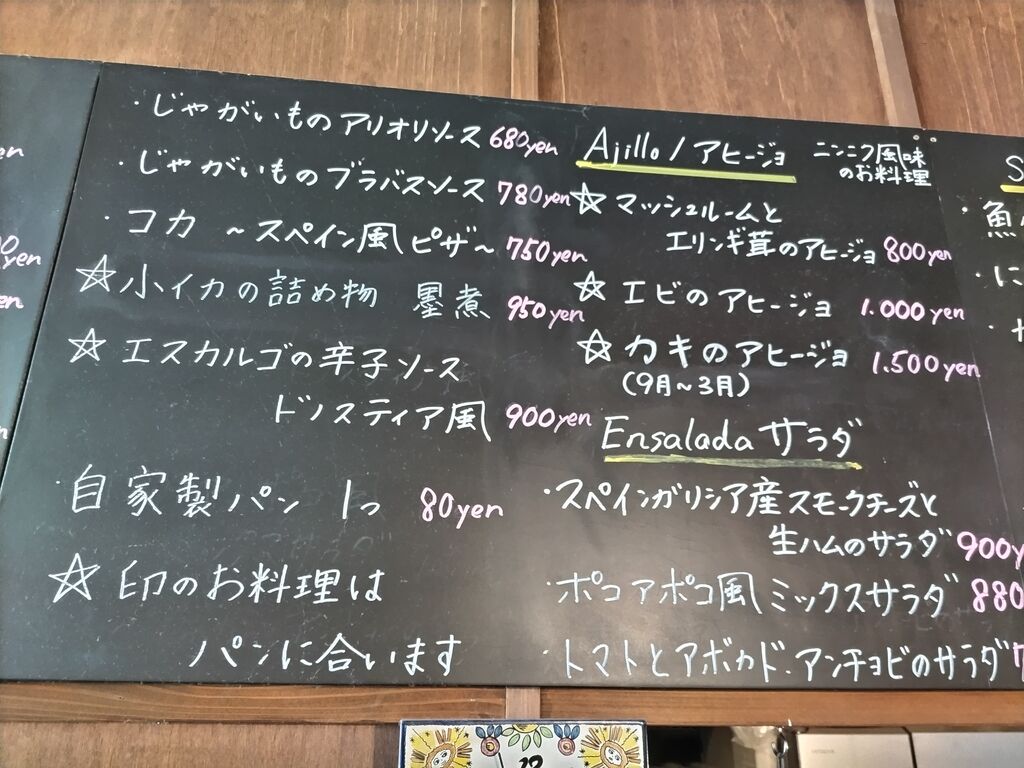 ・じゃがいものアリオリソース 680yen
・じゃがいものブラバスソース 780yen
・コカ ～スペイン風ピザ～ 750yen
☆小イカの詰め物 墨煮 950yen
☆エスカルゴの辛子ソース
ドノスティア風 900yen
・自家製パン 1つ 80yen
☆印のお料理は
パンに合います
Ajillo / アヒージョ ニンニク風味
のお料理
☆マッシュルームと
エリンギ茸のアヒージョ 800yen
☆エビのアヒージョ 1.000yen
☆カキのアヒージョ 1.500yen
(9月～3月)
Ensalada サラダ
・スペインガリシア産スモークチーズと
生ハムのサラダ 900y
・ポコアポコ風ミックスサラダ 880
・トマトとアボカド・アンチョビのサラダ 7
S
・魚
・に